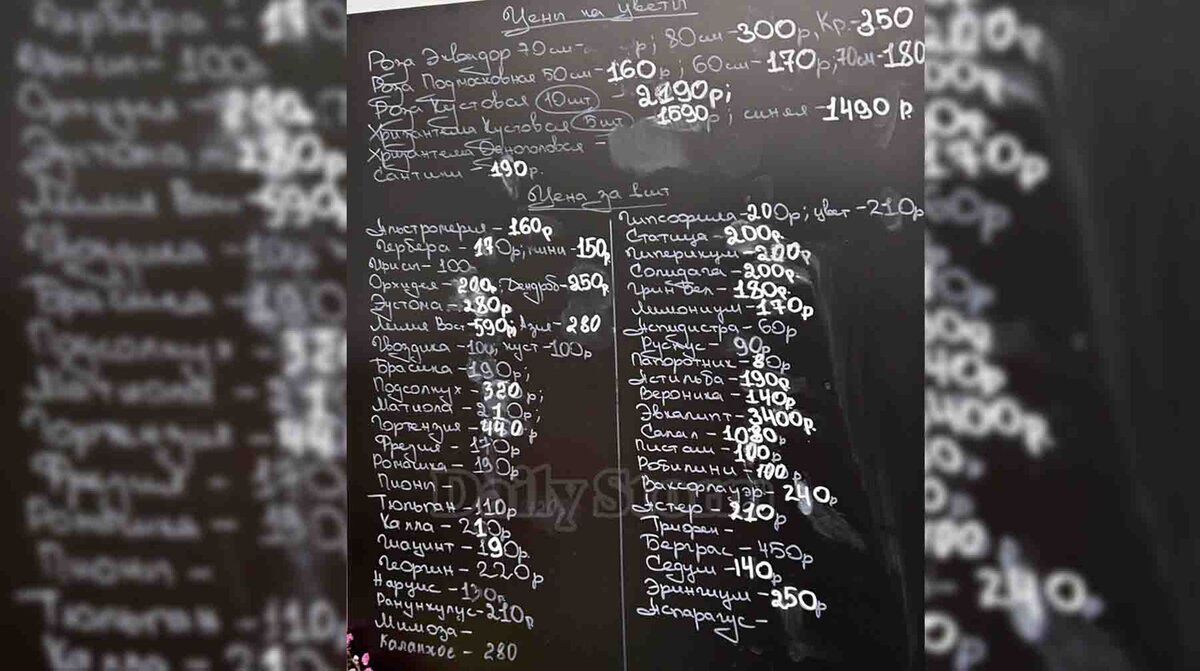 Цены на цветы
Роза Эквадор 70см- р; 80см-300р, Кр.-350
Роза Подмосковная 50см-160р; 60см-170р, 70см-180
Роза Кустовая 10шт - 2190р;
Хризантема Кустовая 5шт -1590р; синяя -1490р.
Хризантема Одноголовая -
Сантини -190р.
Цена за 1шт
Альстромерия - 160р
Гербера - 170р; мини -150р
Ирисы- 100
Орхидея - 200, Дендроб-250р
Эустома -280р
Лилия Вост-590р; Азия -280
Гвоздика -100, куст -100р
Брасика -190р;
Подсолнух -320р;
Матиола -210р;
Гортензия -440р
Фрезия - 170р
Ромашка - 190р
Пионы -
Тюльпан -110р
Калла -210р
Гиацинт -190р.
Георгин -220р
Нарцис -130р
Ранункулус-210р
Мимоза -
Каланхое - 280
Гипсофила-200р; цвет -210р
Статица -200р.
Гиперикум -200р
Солидага -200р
Грин Бел - 180р.
Лимониум -170р
Аспидистра - 60р
Рускус - 90р
Папоротник -80р
Астильба -190р
Вероника - 140р
Эвкалипт -3400р
Салал -1080р
Писташ -100р
Робилини -100р
Ваксфлауэр- 240р
Астер -210р
Трифен -
Берграс - 450р
Седум -140р
Эрингиум -250р
Аспарагус-
Daily Storm